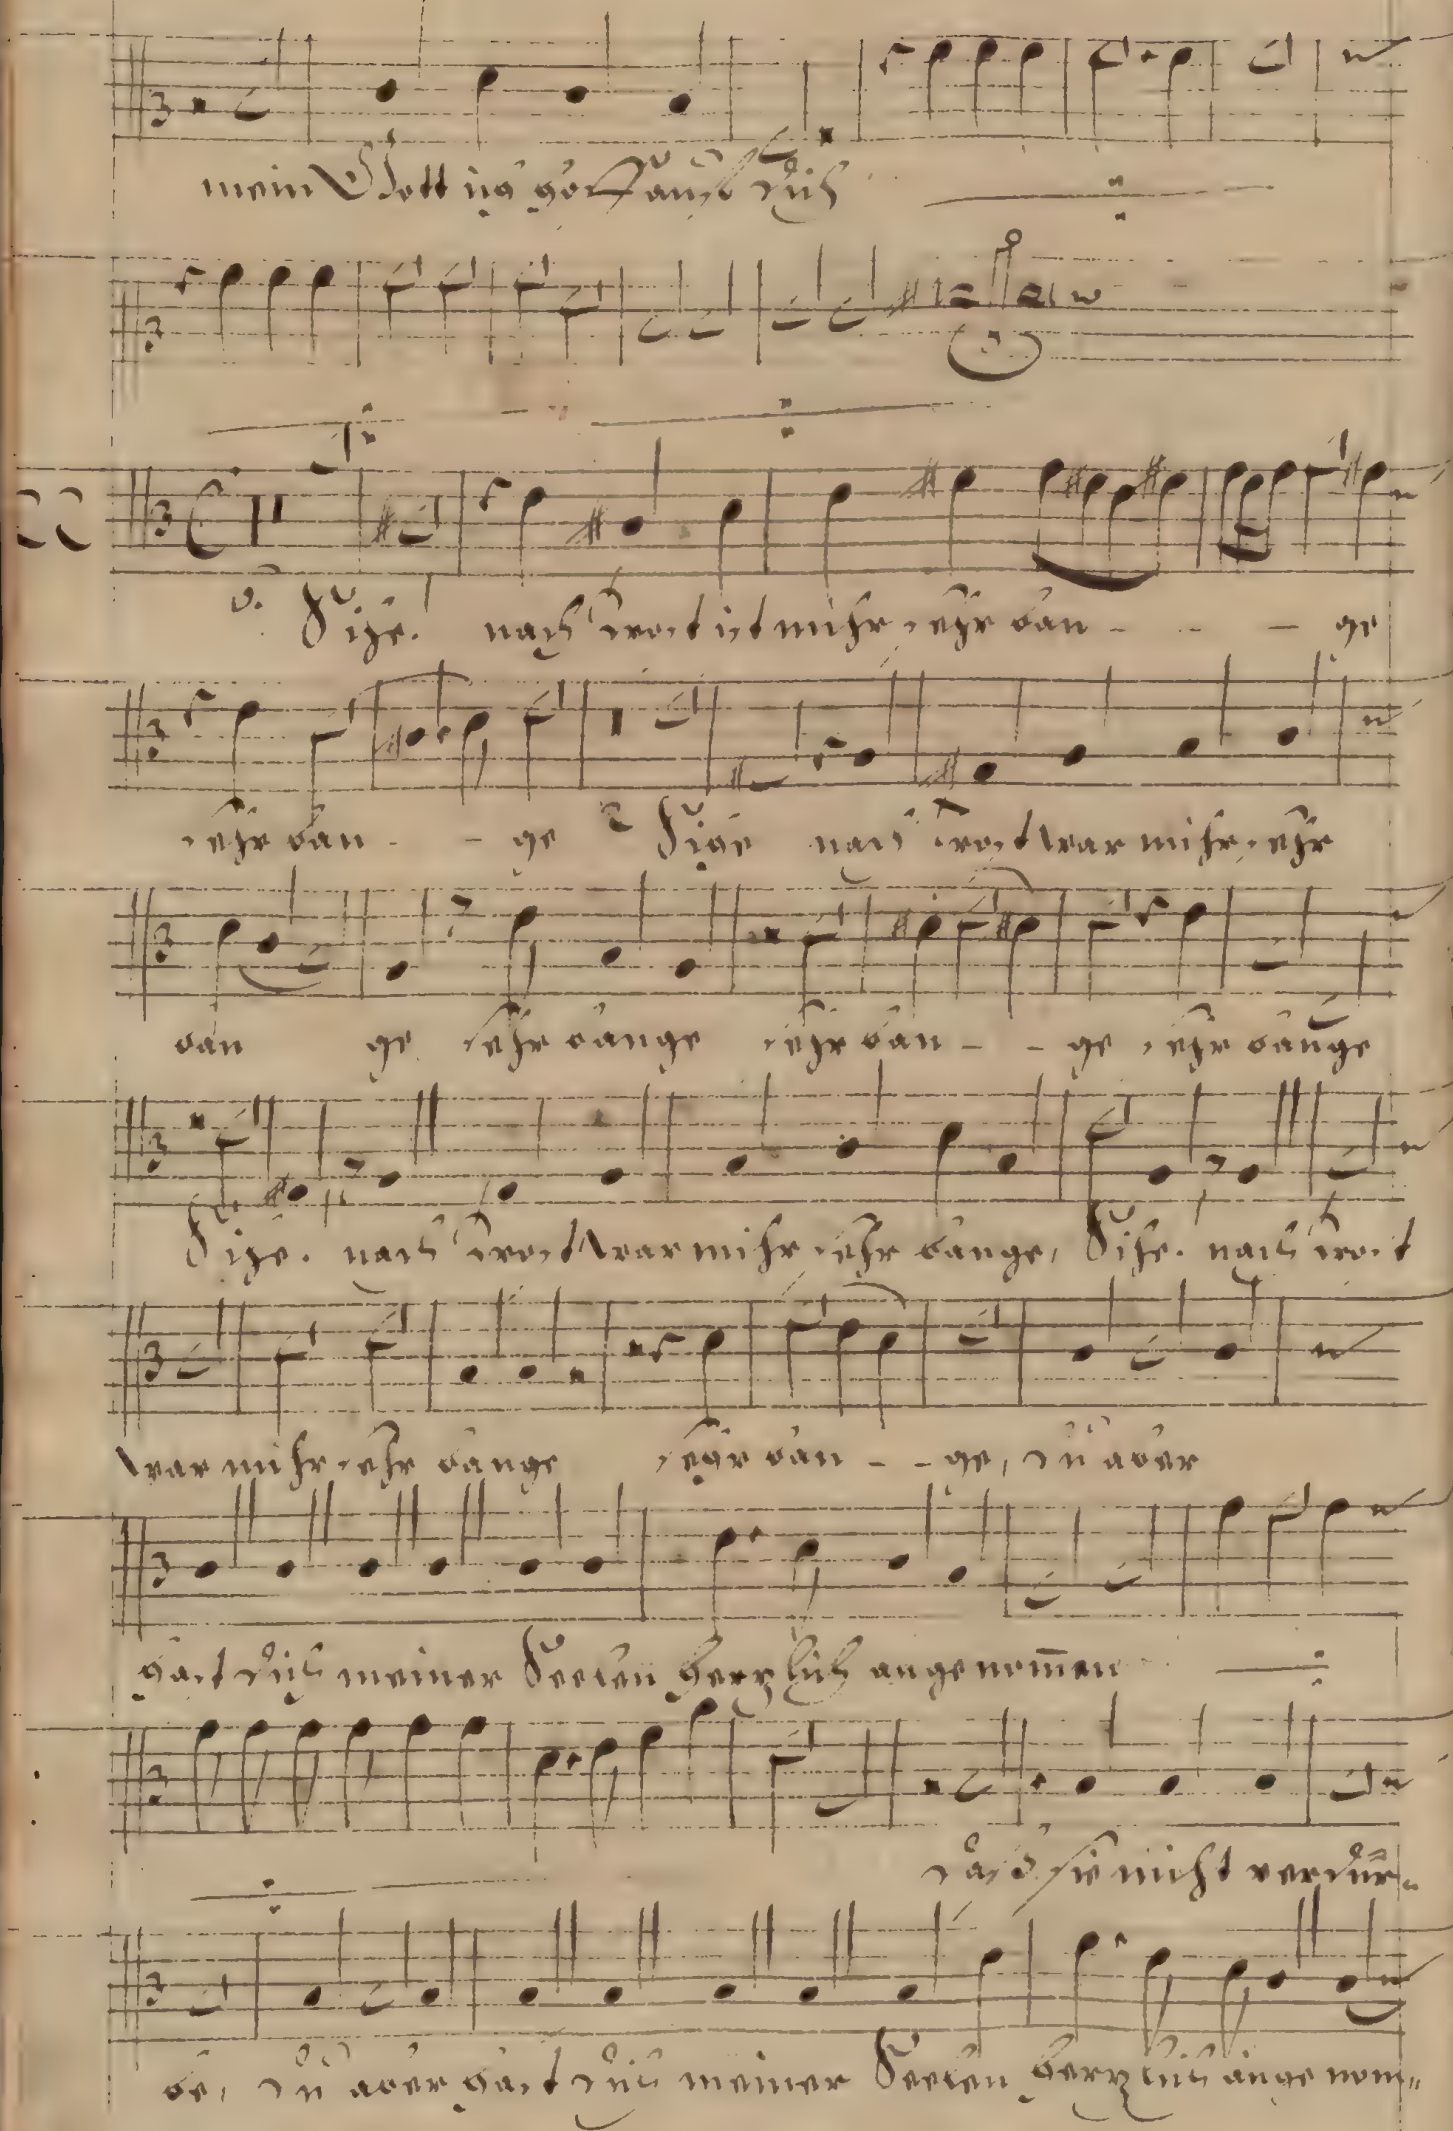 mein Gott ich hoff auf dich
Sihe. nach Trost ist mihr sehr ban - - - ge
sehr ban - - ge Sihe nach Trost war mihr sehr
ban ge sehr bange sehr ban - - ge sehr bange
Sihe. nach Trost war mihr sehr bange, Sihe. nach Trost
war mihr sehr bange sehr ban - - ge, du aber
hast dich meiner Seelen hertzlich angenom̄en
daß sie nicht verdür-
be, du aber hast dich meiner Seelen hertzlich angenom-